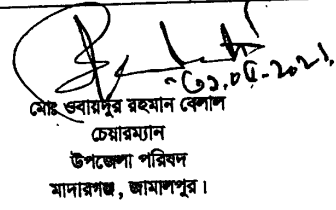 মোঃ ওবায়দুর রহমান বেলাল
চেয়ারম্যান
উপজেলা পরিষদ
মাদারগঞ্জ, জামালপুর।